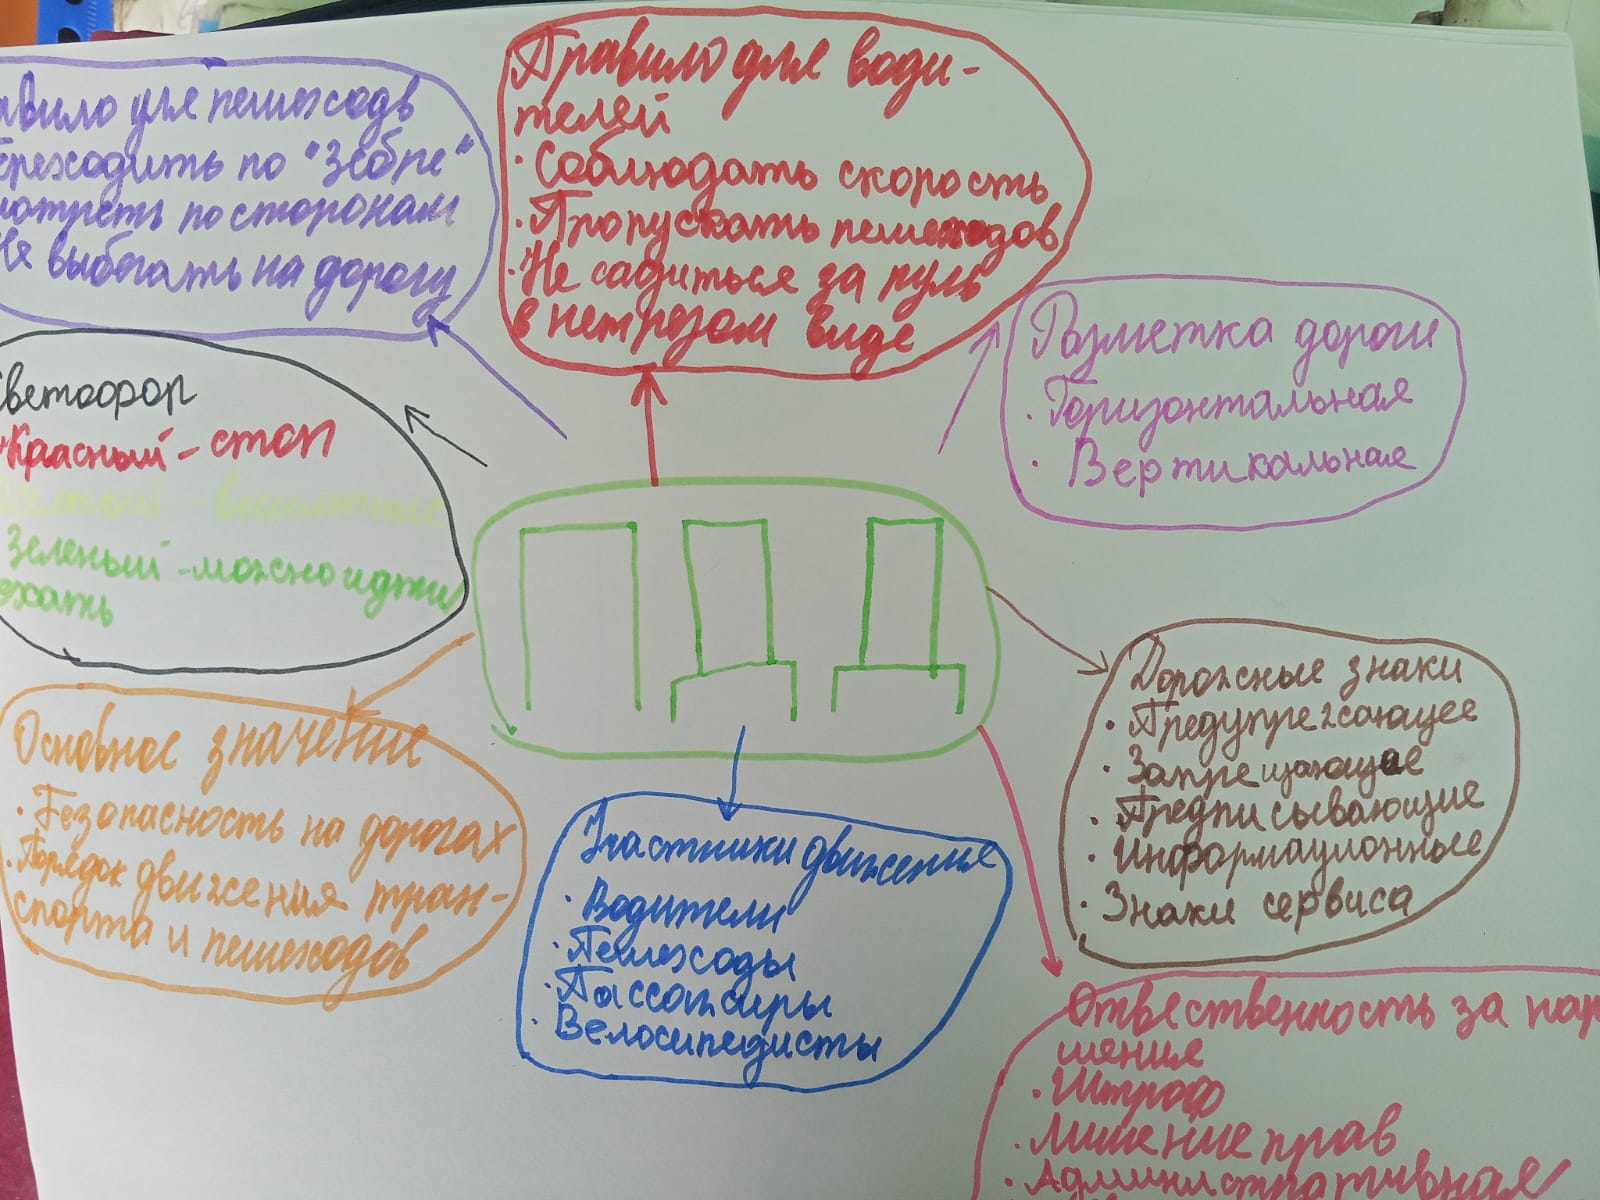 Правило для води-
телей
· Соблюдать скорость
· Пропускать пешеходов
· Не садиться за руль
в нетрезом виде
авило для пешеходв
ереходить по "Зебре"
мотреть по сторонам
Не выбегать на дорогу
Разметка дороги
· Горизонтальная
· Вертикальная
Светофор
Красный - стоп
Желтый - внимание
Зеленый - можно идти/
ехать
ПДД
Дорожные знаки
· Предупрежающее
· Запрещающее
· Предписывающие
· Информационные
· Знаки сервиса
Основное значение
· Безопасность на дорогах
· Порядок движения тран-
спорта и пешеходов
Участники движение
· Водители
· Пешеходы
· Пассажиры
· Велосипедисты
Отвественность за нар
шения
· Штраф
· Лишение прав
· Административная/